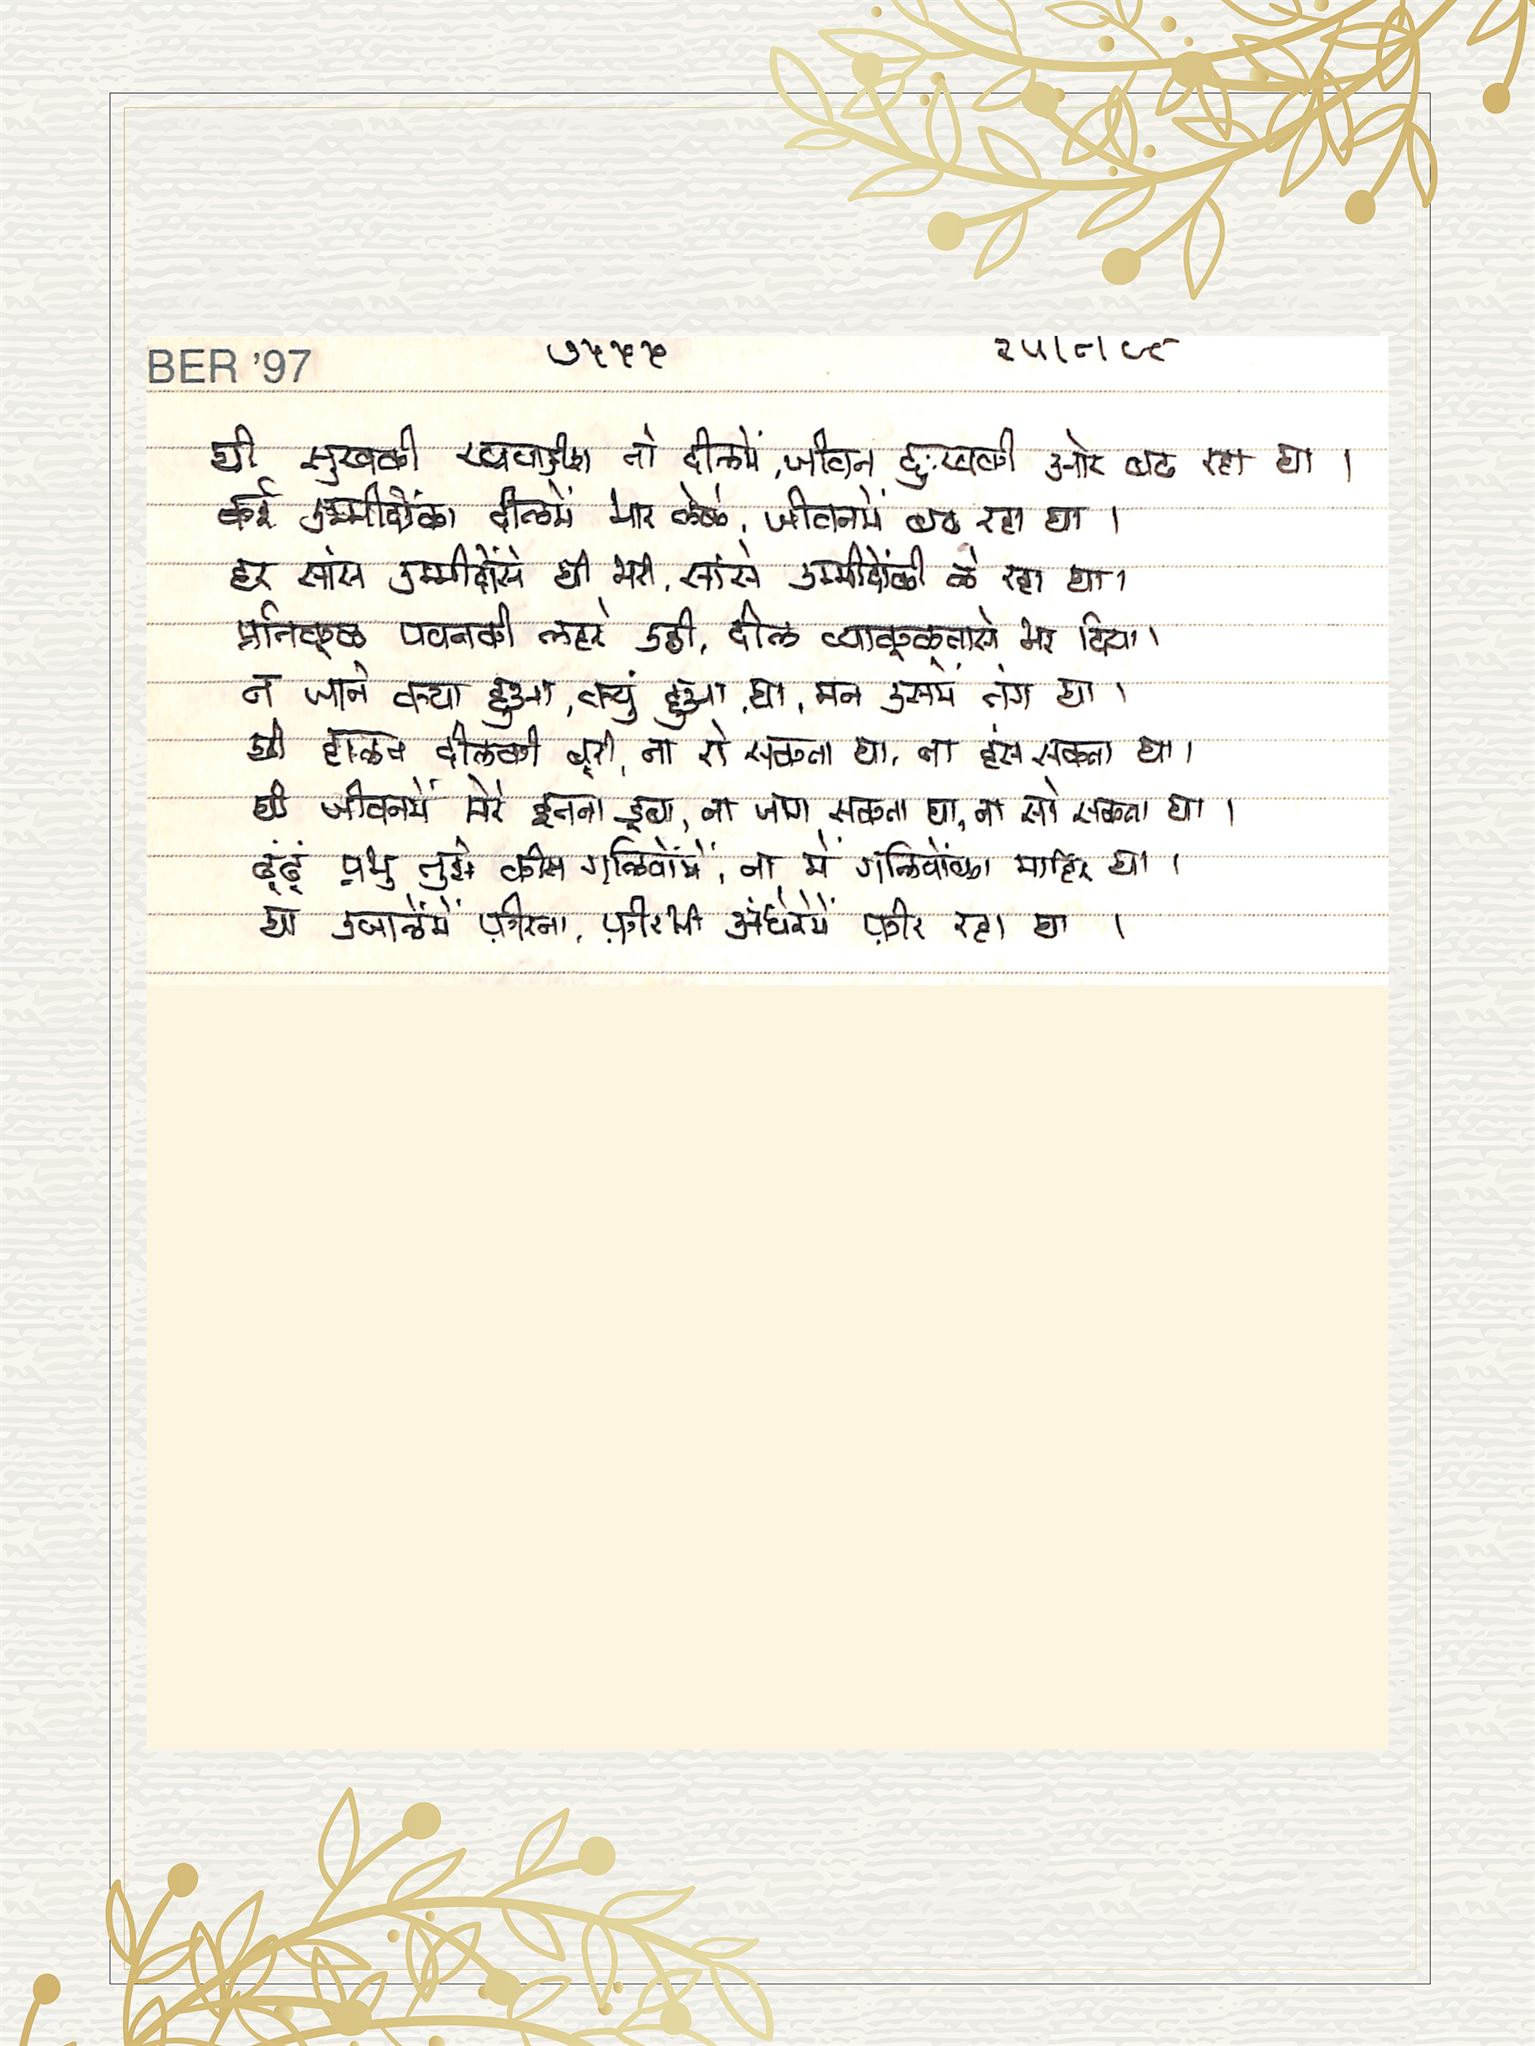 BER '97 ७५५५ २५।८।८८
थी सुखकी ख्वाईश तो दीलमें, जीवन दुःखकी ओर बढ रहा था ।
कई उम्मीदोंका दीलमें भार लेके, जीवनमें बढ रहा था ।
हर सांस उम्मीदोंसे थी भरी, सांसे उम्मीदोंकी ले रहा था।
प्रतिकूळ पवनकी लहरे उठी, दील व्याकूळतासे भर दिया।
न जाने क्या हुआ, क्युं हुआ था, मन उसमें तंग था ।
थी हालत दीलकी बूरी, ना रो सकता था, ना हंस सकता था।
थी जीवनमें मेरे इतना डूबा, ना जाग सकता था, ना सो सकता था ।
ढूंढूं प्रभु तुझे कीस गलियोंमें, ना में गलियोंका माहिर था ।
था उजालेंमें फ़ीरना, फ़ीरभी अंधेरेमें फ़ीर रहा था ।